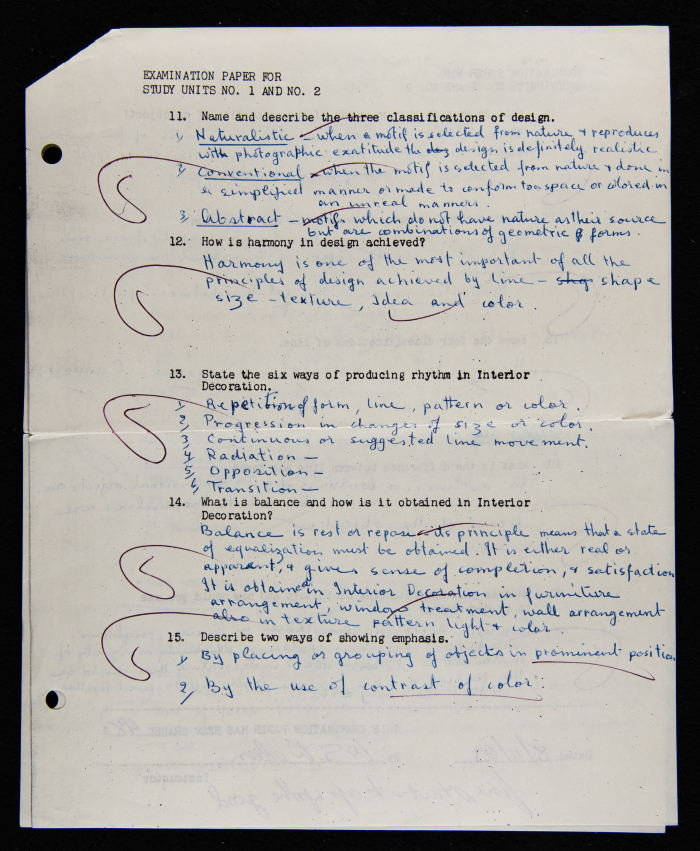 EXAMINATION PAPER FOR
STUDY UNITS NO. 1 AND NO. 2
11. Name and describe the three classifications of design.
1, Naturalistic - when a motif is selected from nature & reproduces
with photographic exatitude the design is definitely realistic
2, conventional - when the motif is selected from nature & done in
a simplified manner or made to conform to a space or colored in
an unreal manners.
3, Abstract - motifs which do not have nature as their source
but are combinations of geometric forms.
12. How is harmony in design achieved?
Harmony is one of the most important of all the
principles of design achieved by line - shap shape
size - texture, Idea and color.
13. State the six ways of producing rhythm in Interior
Decoration.
1, Repetition of form, line, pattern or color.
2, Progression in changes of size or color.
3, Continuous or suggested line movement.
4 Radiation -
5, Opposition -
6, Transition -
14. What is balance and how is it obtained in Interior
Decoration?
Balance is rest or repose its principle means that a state
of equalization must be obtained. It is either real or
apparent, & gives sense of completion, & satisfaction
It is obtained in Interior Decoration in furniture
arrangement, window treatment, wall arrangement
also in texture pattern light & color.
15. Describe two ways of showing emphasis.
1, By placing or grouping of objects in prominent position
2, By the use of contrast of color.